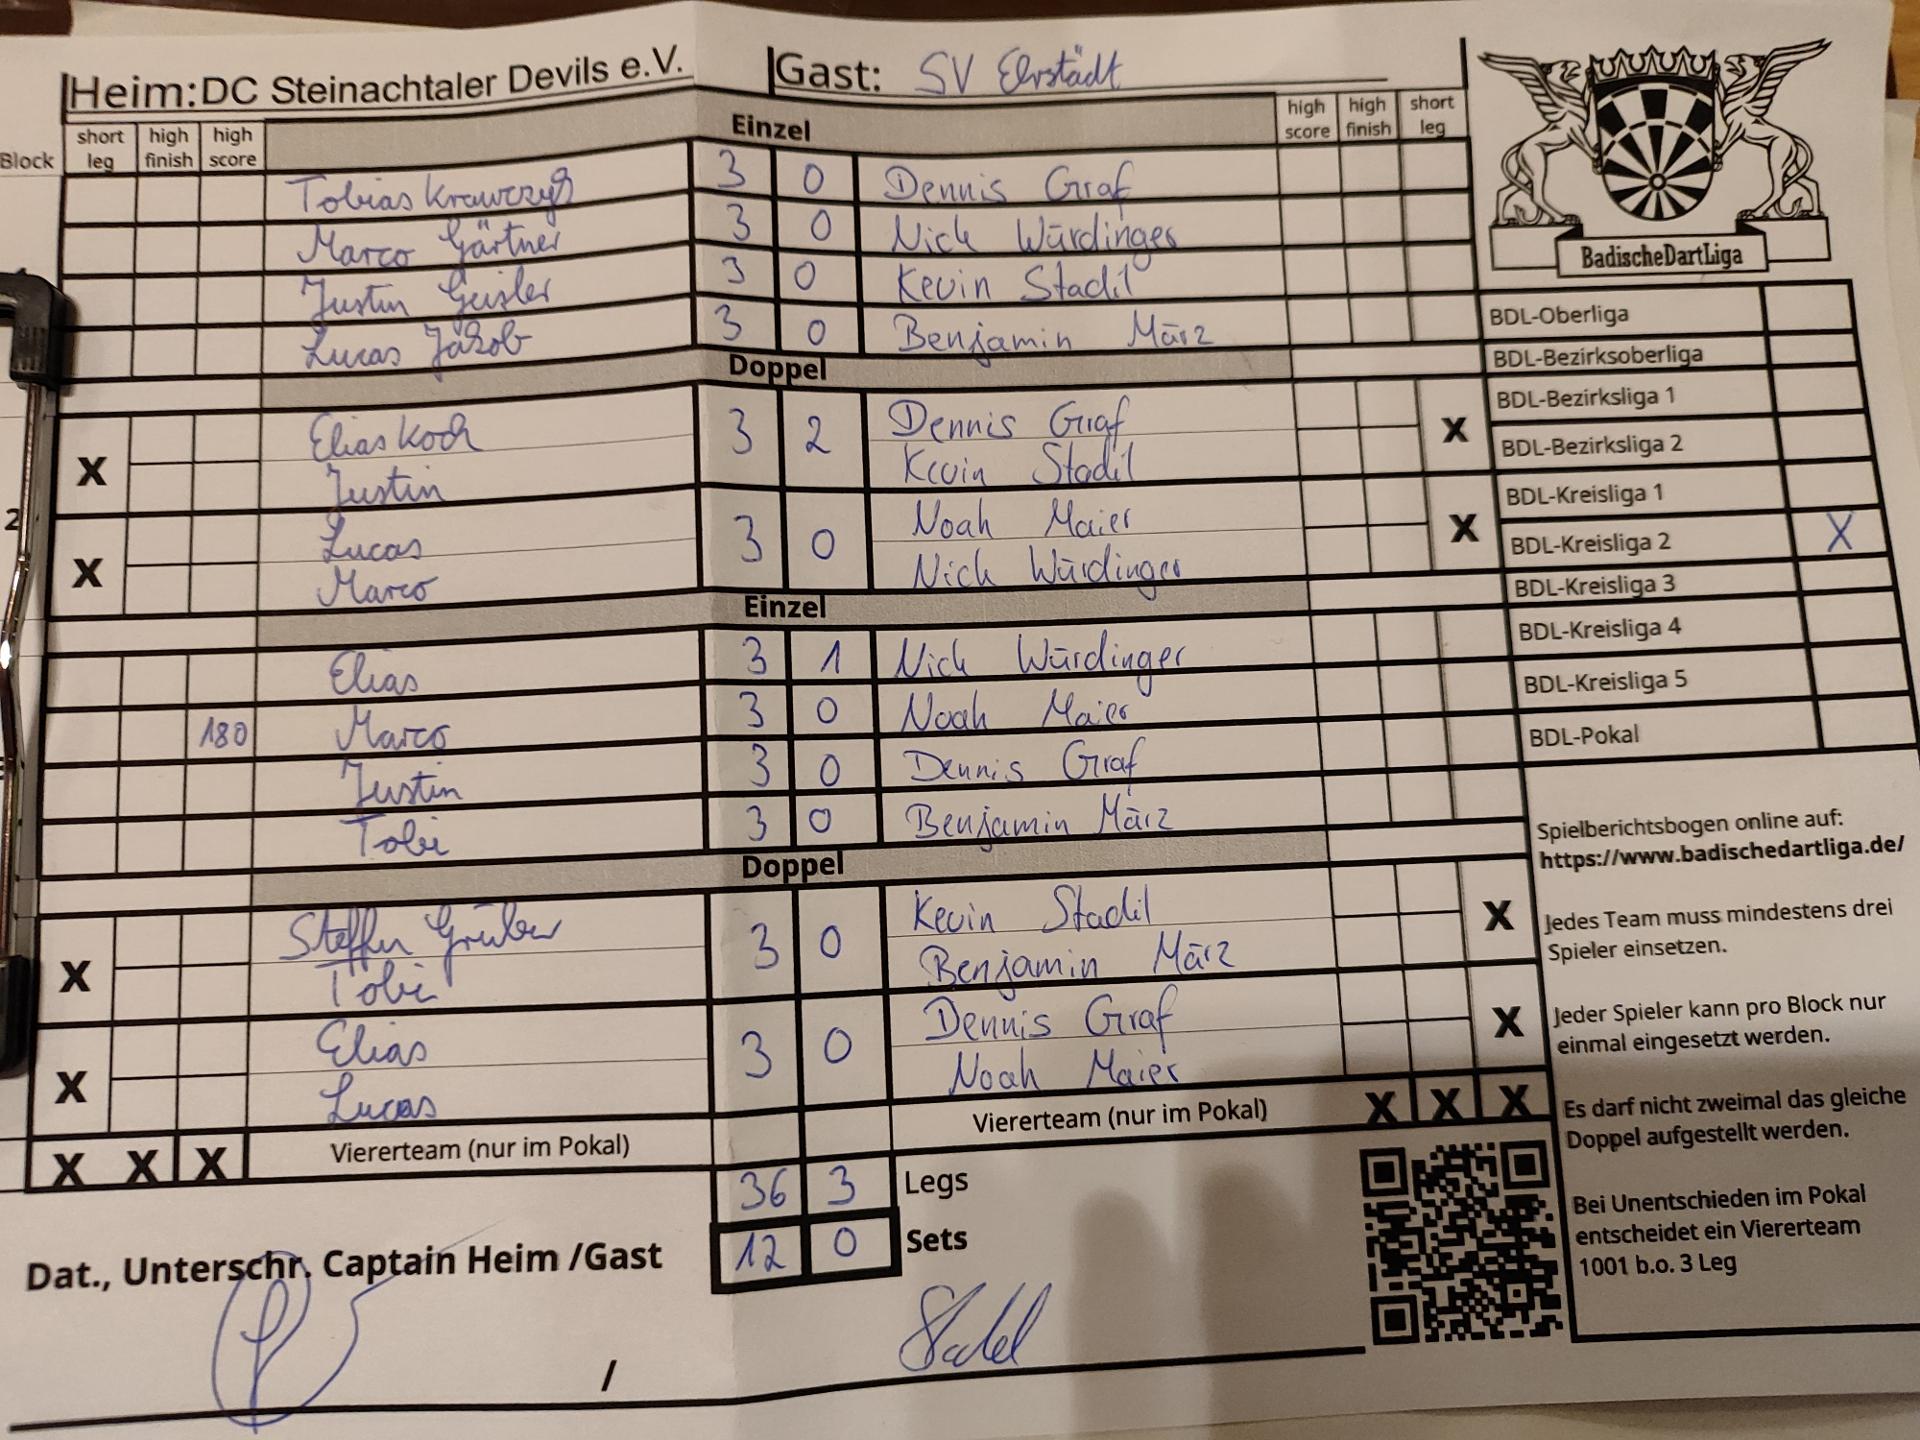 Heim: DC Steinachtaler Devils e.V. Gast: SV Ehrstädt
Block short leg high finish high score Einzel high score high finish short leg
Tobias Krawczyk 3 0 Dennis Graf
Marco Gärtner 3 0 Nick Würdinger
Justin Geisler 3 0 Kevin Stadil
Lucas Jakob 3 0 Benjamin März
Doppel
X Elias Koch 3 2 Dennis Graf X
Justin Kevin Stadil
2
X Lucas 3 0 Noah Maier X
Marco Nick Würdinger
Einzel
Elias 3 1 Nick Würdinger
180 Marco 3 0 Noah Maier
Justin 3 0 Dennis Graf
Tobi 3 0 Benjamin März
Doppel
X Steffen Gruber 3 0 Kevin Stadil X
Tobi Benjamin März
X Elias 3 0 Dennis Graf X
Lucas Noah Maier
X X X Viererteam (nur im Pokal) Viererteam (nur im Pokal) X X X
36 3 Legs
12 0 Sets
Dat., Unterschr. Captain Heim /Gast
/
BadischeDartLiga
BDL-Oberliga
BDL-Bezirksoberliga
BDL-Bezirksliga 1
BDL-Bezirksliga 2
BDL-Kreisliga 1
BDL-Kreisliga 2 X
BDL-Kreisliga 3
BDL-Kreisliga 4
BDL-Kreisliga 5
BDL-Pokal
Spielberichtsbogen online auf:
https://www.badischedartliga.de/
Jedes Team muss mindestens drei
Spieler einsetzen.
Jeder Spieler kann pro Block nur
einmal eingesetzt werden.
Es darf nicht zweimal das gleiche
Doppel aufgestellt werden.
Bei Unentschieden im Pokal
entscheidet ein Viererteam
1001 b.o. 3 Leg